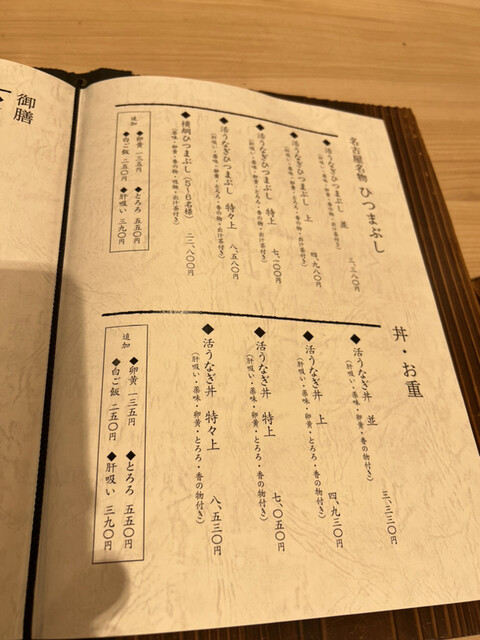 御膳
名古屋名物 ひつまぶし
◆活うなぎひつまぶし 並
三、三八〇円
◆活うなぎひつまぶし 上
四、九八〇円
◆活うなぎひつまぶし 特上
七、一〇〇円
◆活うなぎひつまぶし 特々上
(肝吸い・薬味・卵黄・とろろ・香の物・出汁茶付き)
八、五八〇円
◆横綱ひつまぶし(5〜6名様)
(薬味・卵黄・香の物・吸物・出汁茶付き)
二二、八〇〇円
追加
◆卵黄 一三五円 ◆とろろ 五五〇円
◆白ご飯 二五〇円 ◆肝吸い 三九〇円
丼・お重
◆活うなぎ丼 並
(肝吸い・薬味・卵黄・香の物付き)
三、三三〇円
◆活うなぎ丼 上
(肝吸い・薬味・卵黄・とろろ・香の物付き)
四、九三〇円
◆活うなぎ丼 特上
(肝吸い・薬味・卵黄・とろろ・香の物付き)
七、〇五〇円
◆活うなぎ丼 特々上
(肝吸い・薬味・卵黄・とろろ・香の物付き)
八、五三〇円
追加
◆卵黄 一三五円 ◆とろろ 五五〇円
◆白ご飯 二五〇円 ◆肝吸い 三九〇円